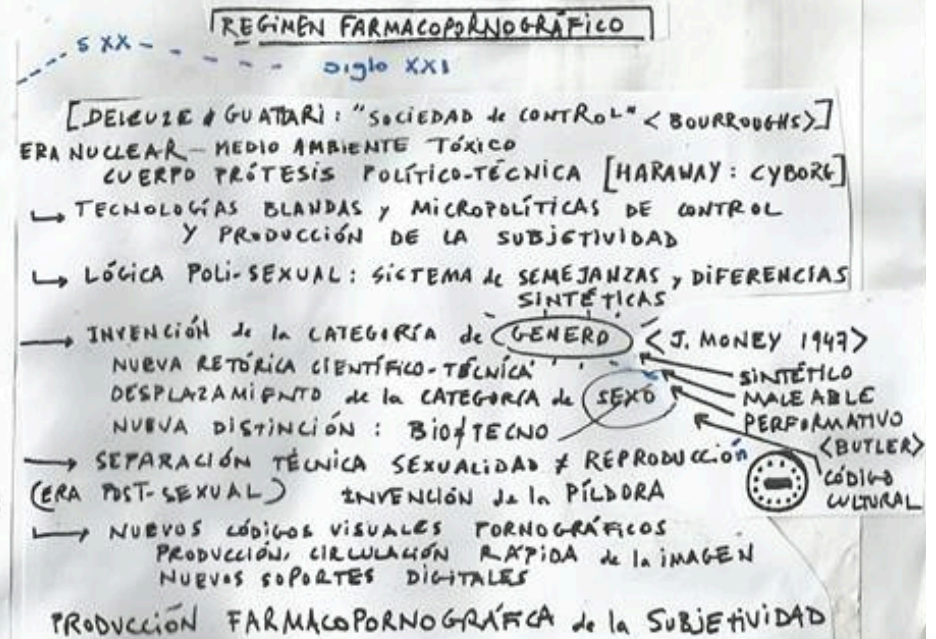 REGIMEN FARMACOPORNOGRÁFICO
S XX
siglo XXI
[DELEUZE & GUATTARI: "SOCIEDAD de CONTROL" <BOURROUGHS>]
ERA NUCLEAR - MEDIO AMBIENTE TÓXICO
CUERPO PRÓTESIS POLÍTICO-TÉCNICA [HARAWAY: CYBORG]
↳ TECNOLOGÍAS BLANDAS y MICROPOLÍTICAS DE CONTROL
Y PRODUCCIÓN DE LA SUBJETIVIDAD
↳ LÓGICA POLI-SEXUAL: SISTEMA de SEMEJANZAS y DIFERENCIAS
SINTÉTICAS
→ INVENCIÓN de la CATEGORÍA de GENERO <J. MONEY 1947>
NUEVA RETÓRICA CIENTÍFICO-TÉCNICA
SINTÉTICO
DESPLAZAMIENTO de la CATEGORÍA de SEXO
MALEABLE
PERFORMATIVO
NUEVA DISTINCIÓN: BIO≠TECNO
<BUTLER>
→ SEPARACIÓN TÉCNICA SEXUALIDAD ≠ REPRODUCCIÓN
CÓDIGO
(ERA POST-SEXUAL) INVENCIÓN de la PÍLDORA
CULTURAL
↳ NUEVOS CÓDIGOS VISUALES PORNOGRÁFICOS
PRODUCCIÓN, CIRCULACIÓN RÁPIDA de la IMAGEN
NUEVOS SOPORTES DIGITALES
PRODUCCIÓN FARMACOPORNOGRÁFICA de la SUBJETIVIDAD